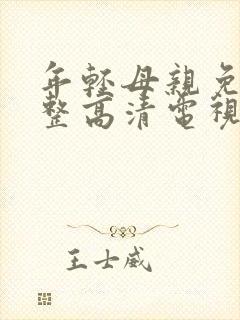 年輕母親免
整高清電視
王士威